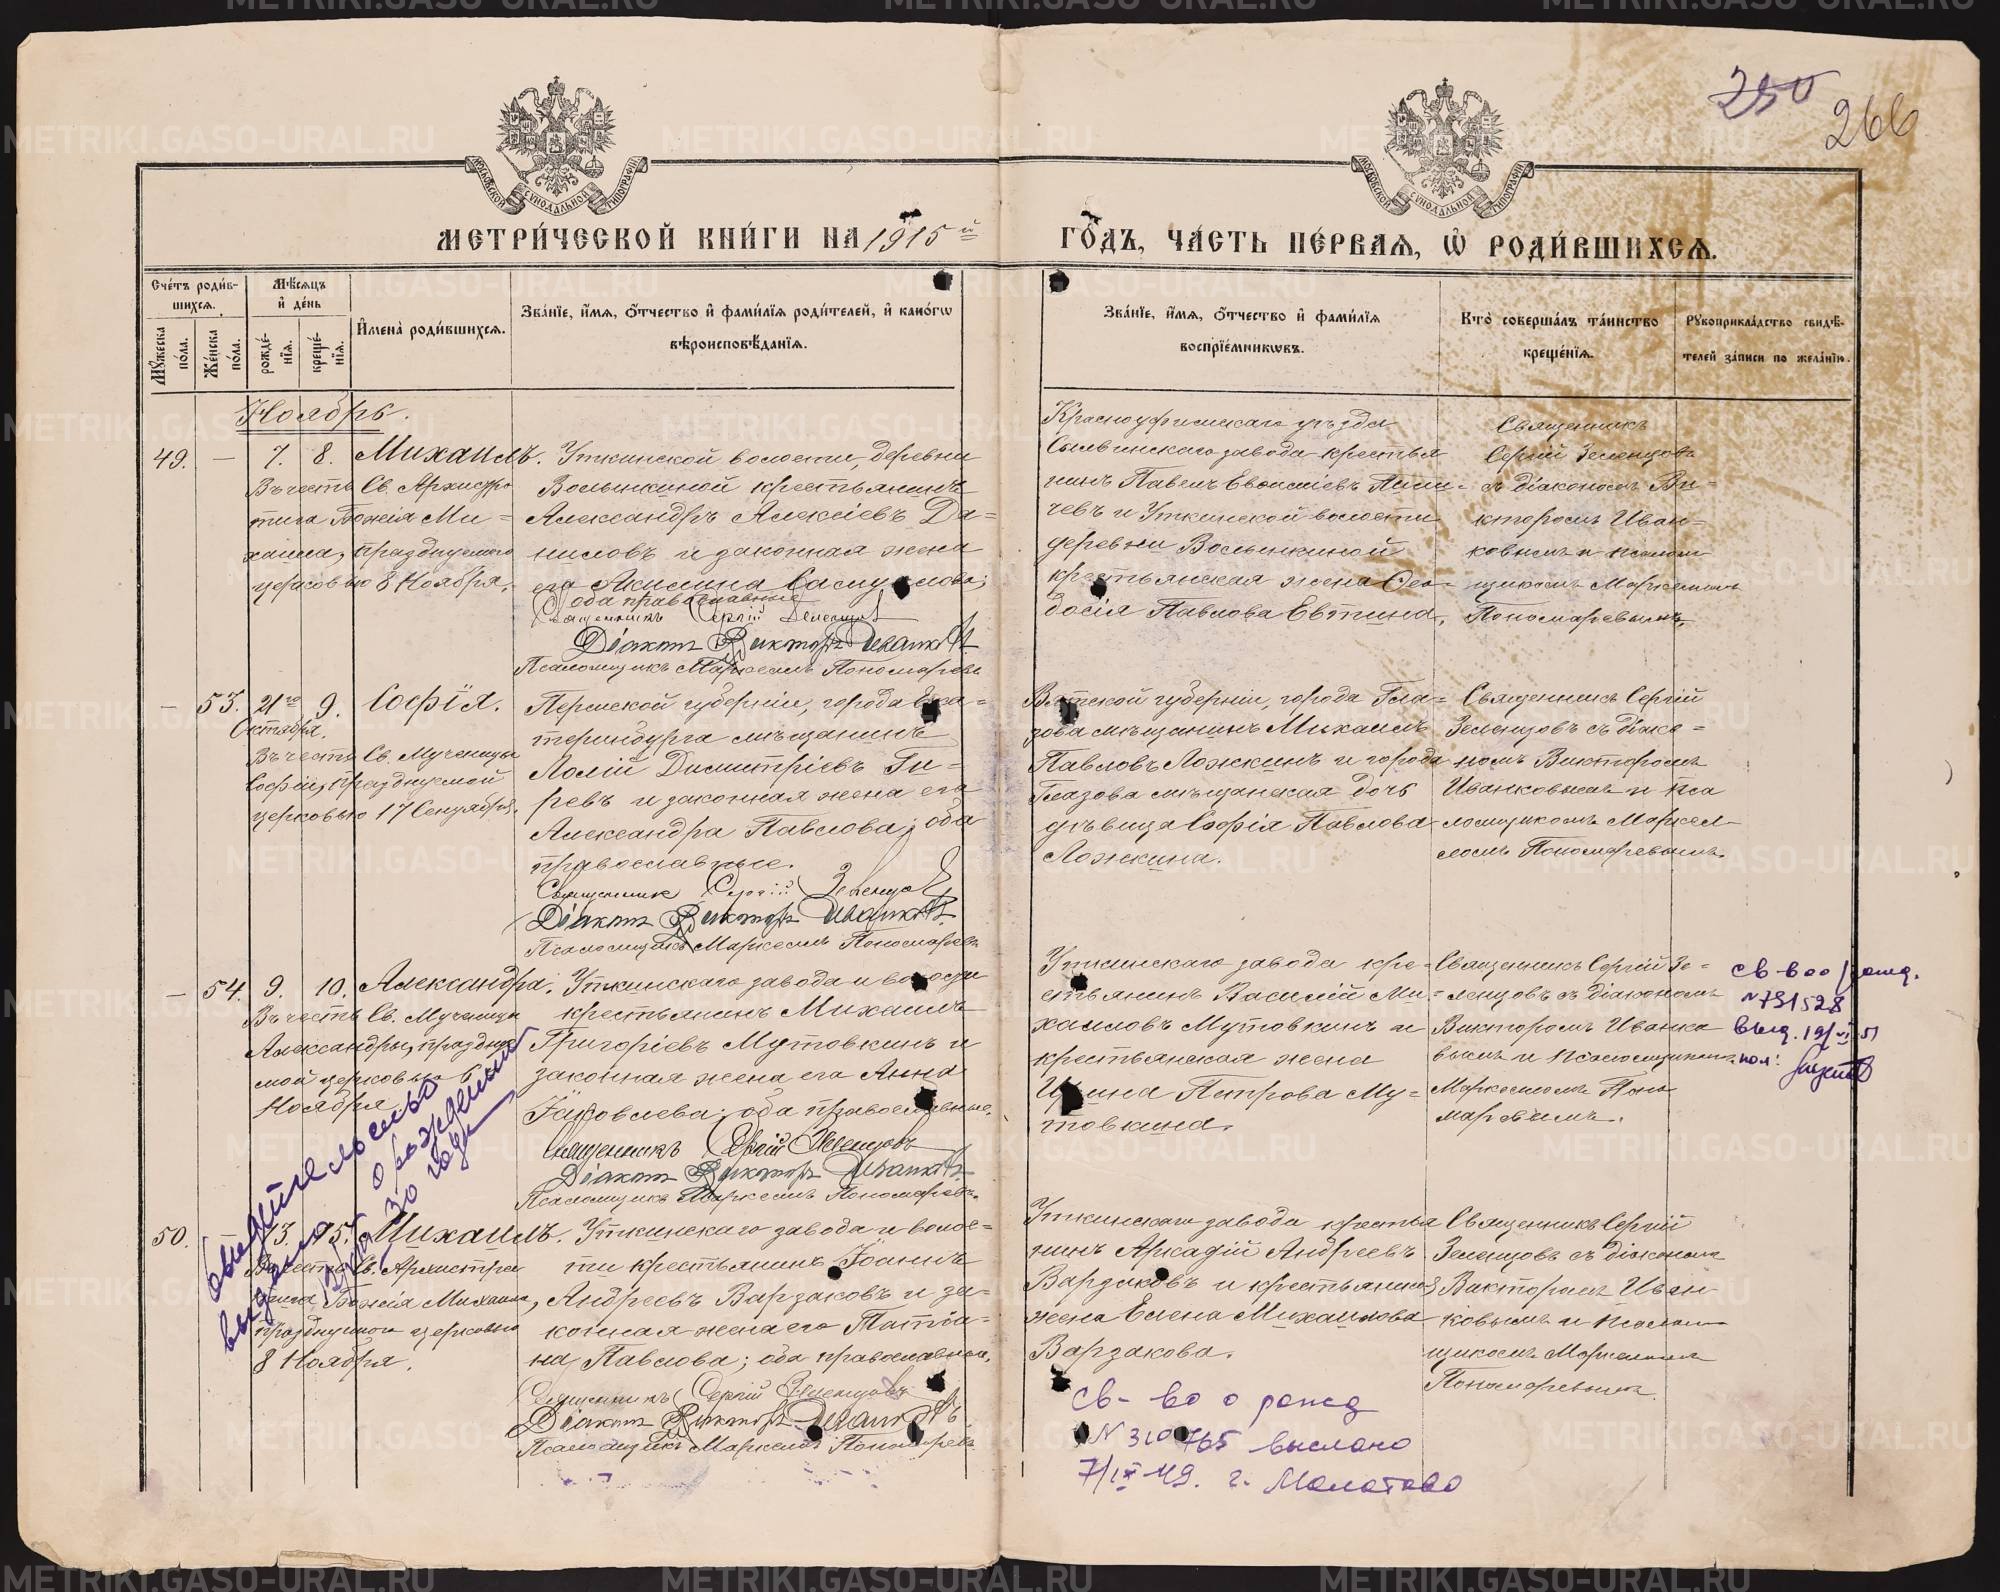 250
266
МЕТРИ́ЧЕСКОЙ КНИ́ГИ НА 1915й ГО́ДЪ, ЧА́СТЬ ПЕ́РВАЯ, Ѡ҆ РОДИ́ВШИХСЯ.
Сче́тъ роди́в-
шихся.
Мꙋ́жеска по́ла.
Же́нска по́ла.
Мѣ́сяцъ
и҆ де́нь
рожде́-
нїя.
креще́-
нїя.
И҆мена̀ роди́вшихся.
Зва́нїе, и҆́мя, ѻ҆́тчество и҆ фами́лїя роди́телей, и҆ како́гѡ
вѣроисповѣ́данїя.
Зва́нїе, и҆́мя, ѻ҆́тчество и҆ фами́лїя
воспрїе́мникѡвъ.
Кто̀ соверша́лъ та́инство
креще́нїя.
Рꙋкоприкла́дство свидѣ́-
телей за́писи по жела́нїю.
Ноябрь.
49. — 7. 8. Михаилъ.
Въ честь Св. Архистра
тига Божія Ми-
хаила, празднуемаго
церковью 8 Ноября.
Уткинской волости, деревни
Волынкиной крестьянинъ
Александръ Алексіевъ Да-
ниловъ и законная жена
его Акилина Самуилова;
оба православные
Священникъ Сергій Зеленцовъ
Діаконъ Викторъ Иванковъ
Псаломщикъ Маркеллъ Пономаревъ
Красноуфимскаго уѣзда
Сылвинскаго завода крестья
нинъ Павелъ
чевъ и Уткинской волости
деревни Волынкиной
крестьянская жена Ѳео-
досія Павлова
Священникъ
Сергій Зеленцовъ
съ діакономъ Ви-
кторомъ Иван-
ковымъ и псалом
щикомъ Маркелломъ
Пономаревымъ.
— 53. 21го 9. Софія.
Октября.
Въ честь Св. Мученицы
Софіи, празднуемой
церковью 17 Сентября.
Пермской губерніи, города Ека-
теринбурга мѣщанинъ
Димитріевъ Ги-
ревъ и законная жена его
Александра Павлова; оба
православные.
Священник Сергій Зеленцовъ
Діаконъ Викторъ Иванковъ.
Псаломщикъ Маркеллъ Пономаревъ
Вятской губерніи, города Гла-
зова мѣщанинъ Михаилъ
Павловъ Ложкинъ и города
Глазова мѣщанская дочь
дѣвица Софія Павлова
Ложкина.
Священникъ Сергій
Зеленцовъ съ діако-
номъ Викторомъ
Иванковымъ и пса
ломщикомъ Маркел-
ломъ Пономаревымъ.
— 54. 9. 10. Александра.
Въ честь Св. Мученицы
Александры, празднуе
мой церковью 6
Ноября
Уткинскаго завода и волости
крестьянинъ Михаилъ
Григоріевъ Мутовкинъ и
законная жена его Анна
Іаковлева; оба православные.
Священникъ Сергій Зеленцовъ
Діаконъ Викторъ Иванковъ
Псаломщикъ Маркеллъ Пономаревъ.
Уткинскаго завода кре-
стьянинъ Василій Ми-
хаиловъ Мутовкинъ и
крестьянская жена
Ирина Петрова Му-
товкина.
Священникъ Сергій Зе-
ленцовъ съ діакономъ
Викторомъ Иванко
вымъ и псаломщикомъ
Маркелломъ Поно
маревымъ.
св-во о рожд.
№ 731528
выд. 19/VI 51
свидетельство
выдано о рождении
30 года
50. 13. 15. Михаилъ.
Въ честь Св. Архистра
тига Божія Михаила,
празднуемаго церковью
8 Ноября.
Уткинскаго завода и волос-
ти крестьянинъ Іоаннъ
Андреевъ Варзаковъ и за-
конная жена его Татіа-
на Павлова; оба православные.
Священникъ Сергій Зеленцовъ
Діаконъ Викторъ Иванковъ
Псаломщикъ Маркеллъ Пономаревъ
Уткинскаго завода крестья
нинъ Аркадій Андреевъ
Варзаковъ и крестьянская
жена Елена Михаилова
Варзакова.
Священникъ Сергій
Зеленцовъ съ діакономъ
Викторомъ Иван
ковымъ и псалом
щикомъ Маркелломъ
Пономаревымъ.
св-во о рожд
№ 310765 выслано
7/IX-49. г. Молотово
METRIKI.GASO-URAL.RU